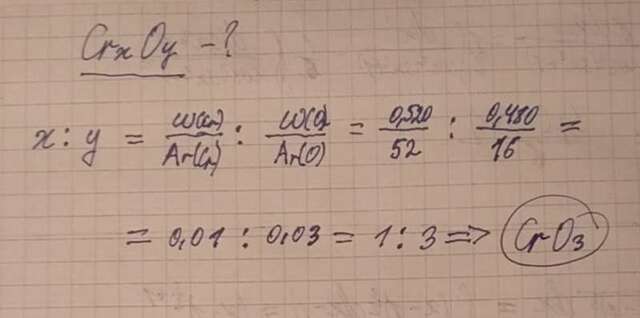 CrxOy - ?
x : y = w(Cr)/Ar(Cr) : w(O)/Ar(O) = 0,520/52 : 0,480/16 =
= 0,01 : 0,03 = 1 : 3 => CrO3